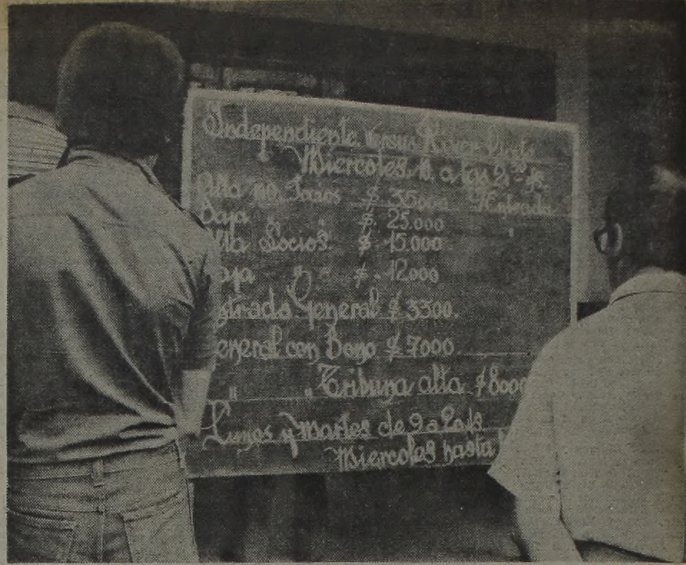 Independiente versus River Plate
Miercoles. 10. a las 21 hs.
Alta no Socios $ 35000 Numerada
Baja " " $ 25.000 "
Alta Socios. $. 15.000
" $. 12000
Entrada General $ 3300.
General con Bono $ 7000.
" " Tribuna alta $ 8000
Lunes y Martes de 9 a 20 hs
Miercoles hasta